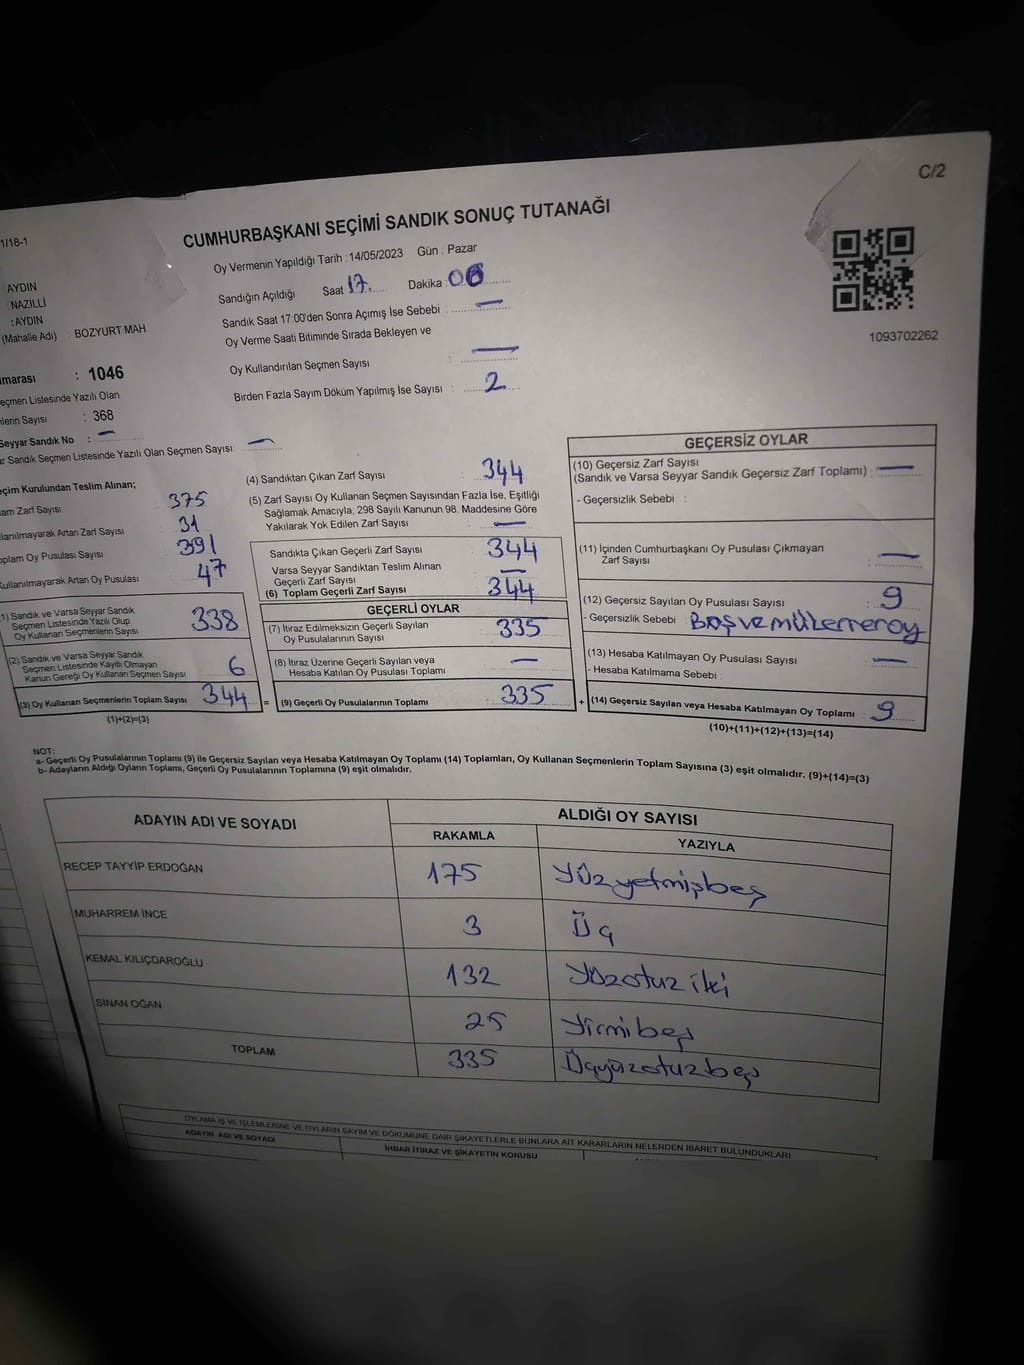 C/2
CUMHURBAŞKANI SEÇİMİ SANDIK SONUÇ TUTANAĞI
1/18-1
Oy Vermenin Yapıldığı Tarih : 14/05/2023 Gün : Pazar
AYDIN
NAZİLLİ
: AYDIN
(Mahalle Adı) : BOZYURT MAH
Sandığın Açıldığı Saat 17 Dakika : 06
Sandık Saat 17:00'den Sonra Açımış İse Sebebi : —
Oy Verme Saati Bitiminde Sırada Bekleyen ve
Oy Kullandırılan Seçmen Sayısı : —
Birden Fazla Sayım Döküm Yapılmış İse Sayısı : 2
1093702262
marası : 1046
eçmen Listesinde Yazılı Olan
nlerin Sayısı : 368
Seyyar Sandık No : —
ar Sandık Seçmen Listesinde Yazılı Olan Seçmen Sayısı : —
eçim Kurulundan Teslim Alınan;
am Zarf Sayısı 375
llanılmayarak Artan Zarf Sayısı 31
oplam Oy Pusulası Sayısı 391
Kullanılmayarak Artan Oy Pusulası 47
(1) Sandık ve Varsa Seyyar Sandık
Seçmen Listesinde Yazılı Olup
Oy Kullanan Seçmenlerin Sayısı 338
(2) Sandık ve Varsa Seyyar Sandık
Seçmen Listesinde Kayıtlı Olmayan
Kanun Gereği Oy Kullanan Seçmen Sayısı 6
(3) Oy Kullanan Seçmenlerin Toplam Sayısı 344 =
(1)+(2)=(3)
(4) Sandıktan Çıkan Zarf Sayısı : 344
(5) Zarf Sayısı Oy Kullanan Seçmen Sayısından Fazla İse, Eşitliği
Sağlamak Amacıyla, 298 Sayılı Kanunun 98. Maddesine Göre
Yakılarak Yok Edilen Zarf Sayısı : —
Sandıkta Çıkan Geçerli Zarf Sayısı : 344
Varsa Seyyar Sandıktan Teslim Alınan
Geçerli Zarf Sayısı : —
(6) Toplam Geçerli Zarf Sayısı : 344
GEÇERLİ OYLAR
(7) İtiraz Edilmeksizin Geçerli Sayılan
Oy Pusulalarının Sayısı : 335
(8) İtiraz Üzerine Geçerli Sayılan veya
Hesaba Katılan Oy Pusulası Toplamı : —
(9) Geçerli Oy Pusulalarının Toplamı : 335 +
GEÇERSİZ OYLAR
(10) Geçersiz Zarf Sayısı
(Sandık ve Varsa Seyyar Sandık Geçersiz Zarf Toplamı) : —
- Geçersizlik Sebebi :
(11) İçinden Cumhurbaşkanı Oy Pusulası Çıkmayan
Zarf Sayısı : —
(12) Geçersiz Sayılan Oy Pusulası Sayısı : 9
- Geçersizlik Sebebi : Boş ve mükerrer oy
(13) Hesaba Katılmayan Oy Pusulası Sayısı : —
- Hesaba Katılmama Sebebi :
(14) Geçersiz Sayılan veya Hesaba Katılmayan Oy Toplamı : 9
(10)+(11)+(12)+(13)=(14)
NOT:
a- Geçerli Oy Pusulalarının Toplamı (9) ile Geçersiz Sayılan veya Hesaba Katılmayan Oy Toplamı (14) Toplamları, Oy Kullanan Seçmenlerin Toplam Sayısına (3) eşit olmalıdır. (9)+(14)=(3)
b- Adayların Aldığı Oyların Toplamı, Geçerli Oy Pusulalarının Toplamına (9) eşit olmalıdır.
ADAYIN ADI VE SOYADI ALDIĞI OY SAYISI
RAKAMLA YAZIYLA
RECEP TAYYİP ERDOĞAN 175 Yüzyetmişbeş
MUHARREM İNCE 3 Üç
KEMAL KILIÇDAROĞLU 132 Yüzotuz iki
SİNAN OĞAN 25 Yirmibeş
TOPLAM 335 Üçyüzotuzbeş
OYLAMA İŞ VE İŞLEMLERİNE VE OYLARIN SAYIM VE DÖKÜMÜNE DAİR ŞİKAYETLERLE BUNLARA AİT KARARLARIN NELERDEN İBARET BULUNDUKLARI
ADAYIN ADI VE SOYADI İHBAR İTİRAZ VE ŞİKAYETİN KONUSU